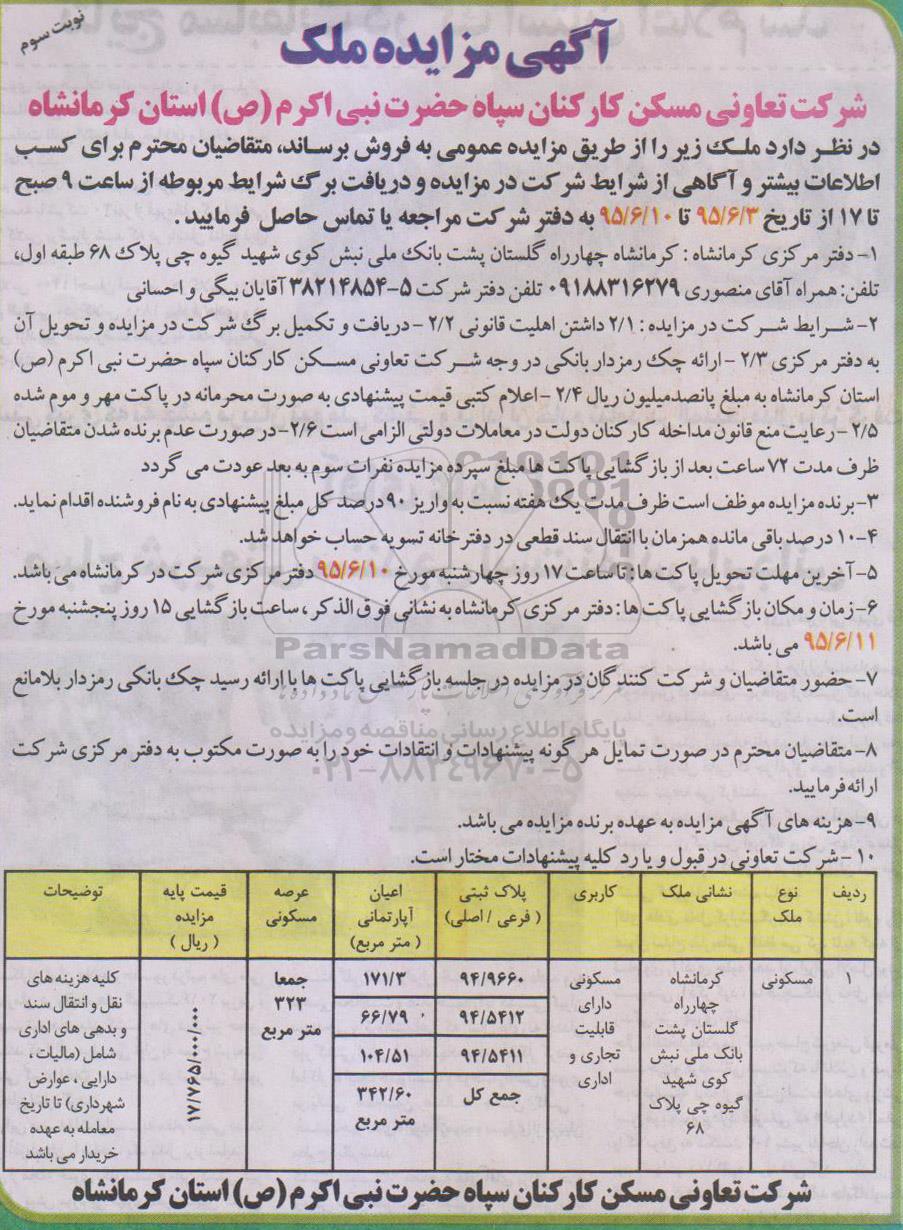 نوبت سوم
آگهی مزایده ملک
شرکت تعاونی مسکن کارکنان سپاه حضرت نبی اکرم (ص) استان کرمانشاه
در نظر دارد ملک زیر را از طریق مزایده عمومی به فروش برساند، متقاضیان محترم برای کسب
اطلاعات بیشتر و آگاهی از شرایط شرکت در مزایده و دریافت برگ شرایط مربوطه از ساعت ۹ صبح
تا ۱۷ از تاریخ ۹۵/۶/۳ تا ۹۵/۶/۱۰ به دفتر شرکت مراجعه یا تماس حاصل فرمایید.
۱- دفتر مرکزی کرمانشاه : کرمانشاه چهارراه گلستان پشت بانک ملی نبش کوی شهید گیوه چی پلاک ۶۸ طبقه اول،
تلفن: همراه آقای منصوری ۰۹۱۸۸۳۱۶۲۷۹ تلفن دفتر شرکت ۵-۳۸۲۱۴۸۵۴ آقایان بیگی و احسانی
۲- شرایط شرکت در مزایده : ۲/۱ داشتن اهلیت قانونی ۲/۲ - دریافت و تکمیل برگ شرکت در مزایده و تحویل آن
به دفتر مرکزی ۲/۳ - ارائه چک رمزدار بانکی در وجه شرکت تعاونی مسکن کارکنان سپاه حضرت نبی اکرم (ص)
استان کرمانشاه به مبلغ پانصدمیلیون ریال ۲/۴ - اعلام کتبی قیمت پیشنهادی به صورت محرمانه در پاکت مهر و موم شده
۲/۵ - رعایت منع قانون مداخله کارکنان دولت در معاملات دولتی الزامی است ۲/۶- در صورت عدم برنده شدن متقاضیان
ظرف مدت ۷۲ ساعت بعد از بازگشایی پاکت ها مبلغ سپرده مزایده نفرات سوم به بعد عودت می گردد
۳- برنده مزایده موظف است ظرف مدت یک هفته نسبت به واریز ۹۰ درصد کل مبلغ پیشنهادی به نام فروشنده اقدام نماید.
۴-۱۰ درصد باقی مانده همزمان با انتقال سند قطعی در دفتر خانه تسویه حساب خواهد شد.
۵- آخرین مهلت تحویل پاکت ها : تا ساعت ۱۷ روز چهارشنبه مورخ ۹۵/۶/۱۰ دفتر مرکزی شرکت در کرمانشاه می باشد.
۶- زمان و مکان بازگشایی پاکت ها : دفتر مرکزی کرمانشاه به نشانی فوق الذکر ، ساعت بازگشایی ۱۵ روز پنجشنبه مورخ
۹۵/۶/۱۱ می باشد.
ParsNamadData
۷- حضور متقاضیان و شرکت کنندگان در مزایده در جلسه بازگشایی پاکت ها با ارائه رسید چک بانکی رمزدار بلامانع
است.
پایگاه اطلاع رسانی مناقصه و مزایده
۸- متقاضیان محترم در صورت تمایل هر گونه پیشنهادات و انتقادات خود را به صورت مکتوب به دفتر مرکزی شرکت
ارائه فرمایید.
۰۲۱-۸۸۳۴۹۶۷۰-۵
۹- هزینه های آگهی مزایده به عهده برنده مزایده می باشد.
۱۰ - شرکت تعاونی در قبول و یا رد کلیه پیشنهادات مختار است.
ردیف | نوع ملک | نشانی ملک | کاربری | پلاک ثبتی ( فرعی / اصلی) | اعیان آپارتمانی ( متر مربع) | عرصه مسکونی | قیمت پایه مزایده ( ریال ) | توضیحات
۱ | مسکونی | کرمانشاه چهارراه گلستان پشت بانک ملی نبش کوی شهید گیوه چی پلاک ۶۸ | مسکونی دارای قابلیت تجاری و اداری | ۹۴/۹۶۶۰ | ۱۷۱/۳ | جمعا ۳۲۳ متر مربع | ۱۷/۷۶۵/۰۰۰/۰۰۰ | کلیه هزینه های نقل و انتقال سند و بدهی های اداری شامل (مالیات ، دارایی ، عوارض شهرداری) تا تاریخ معامله به عهده خریدار می باشد
۹۴/۵۴۱۲ | ۶۶/۷۹
۹۴/۵۴۱۱ | ۱۰۴/۵۱
جمع کل | ۳۴۲/۶۰ متر مربع
شرکت تعاونی مسکن کارکنان سپاه حضرت نبی اکرم (ص) استان کرمانشاه